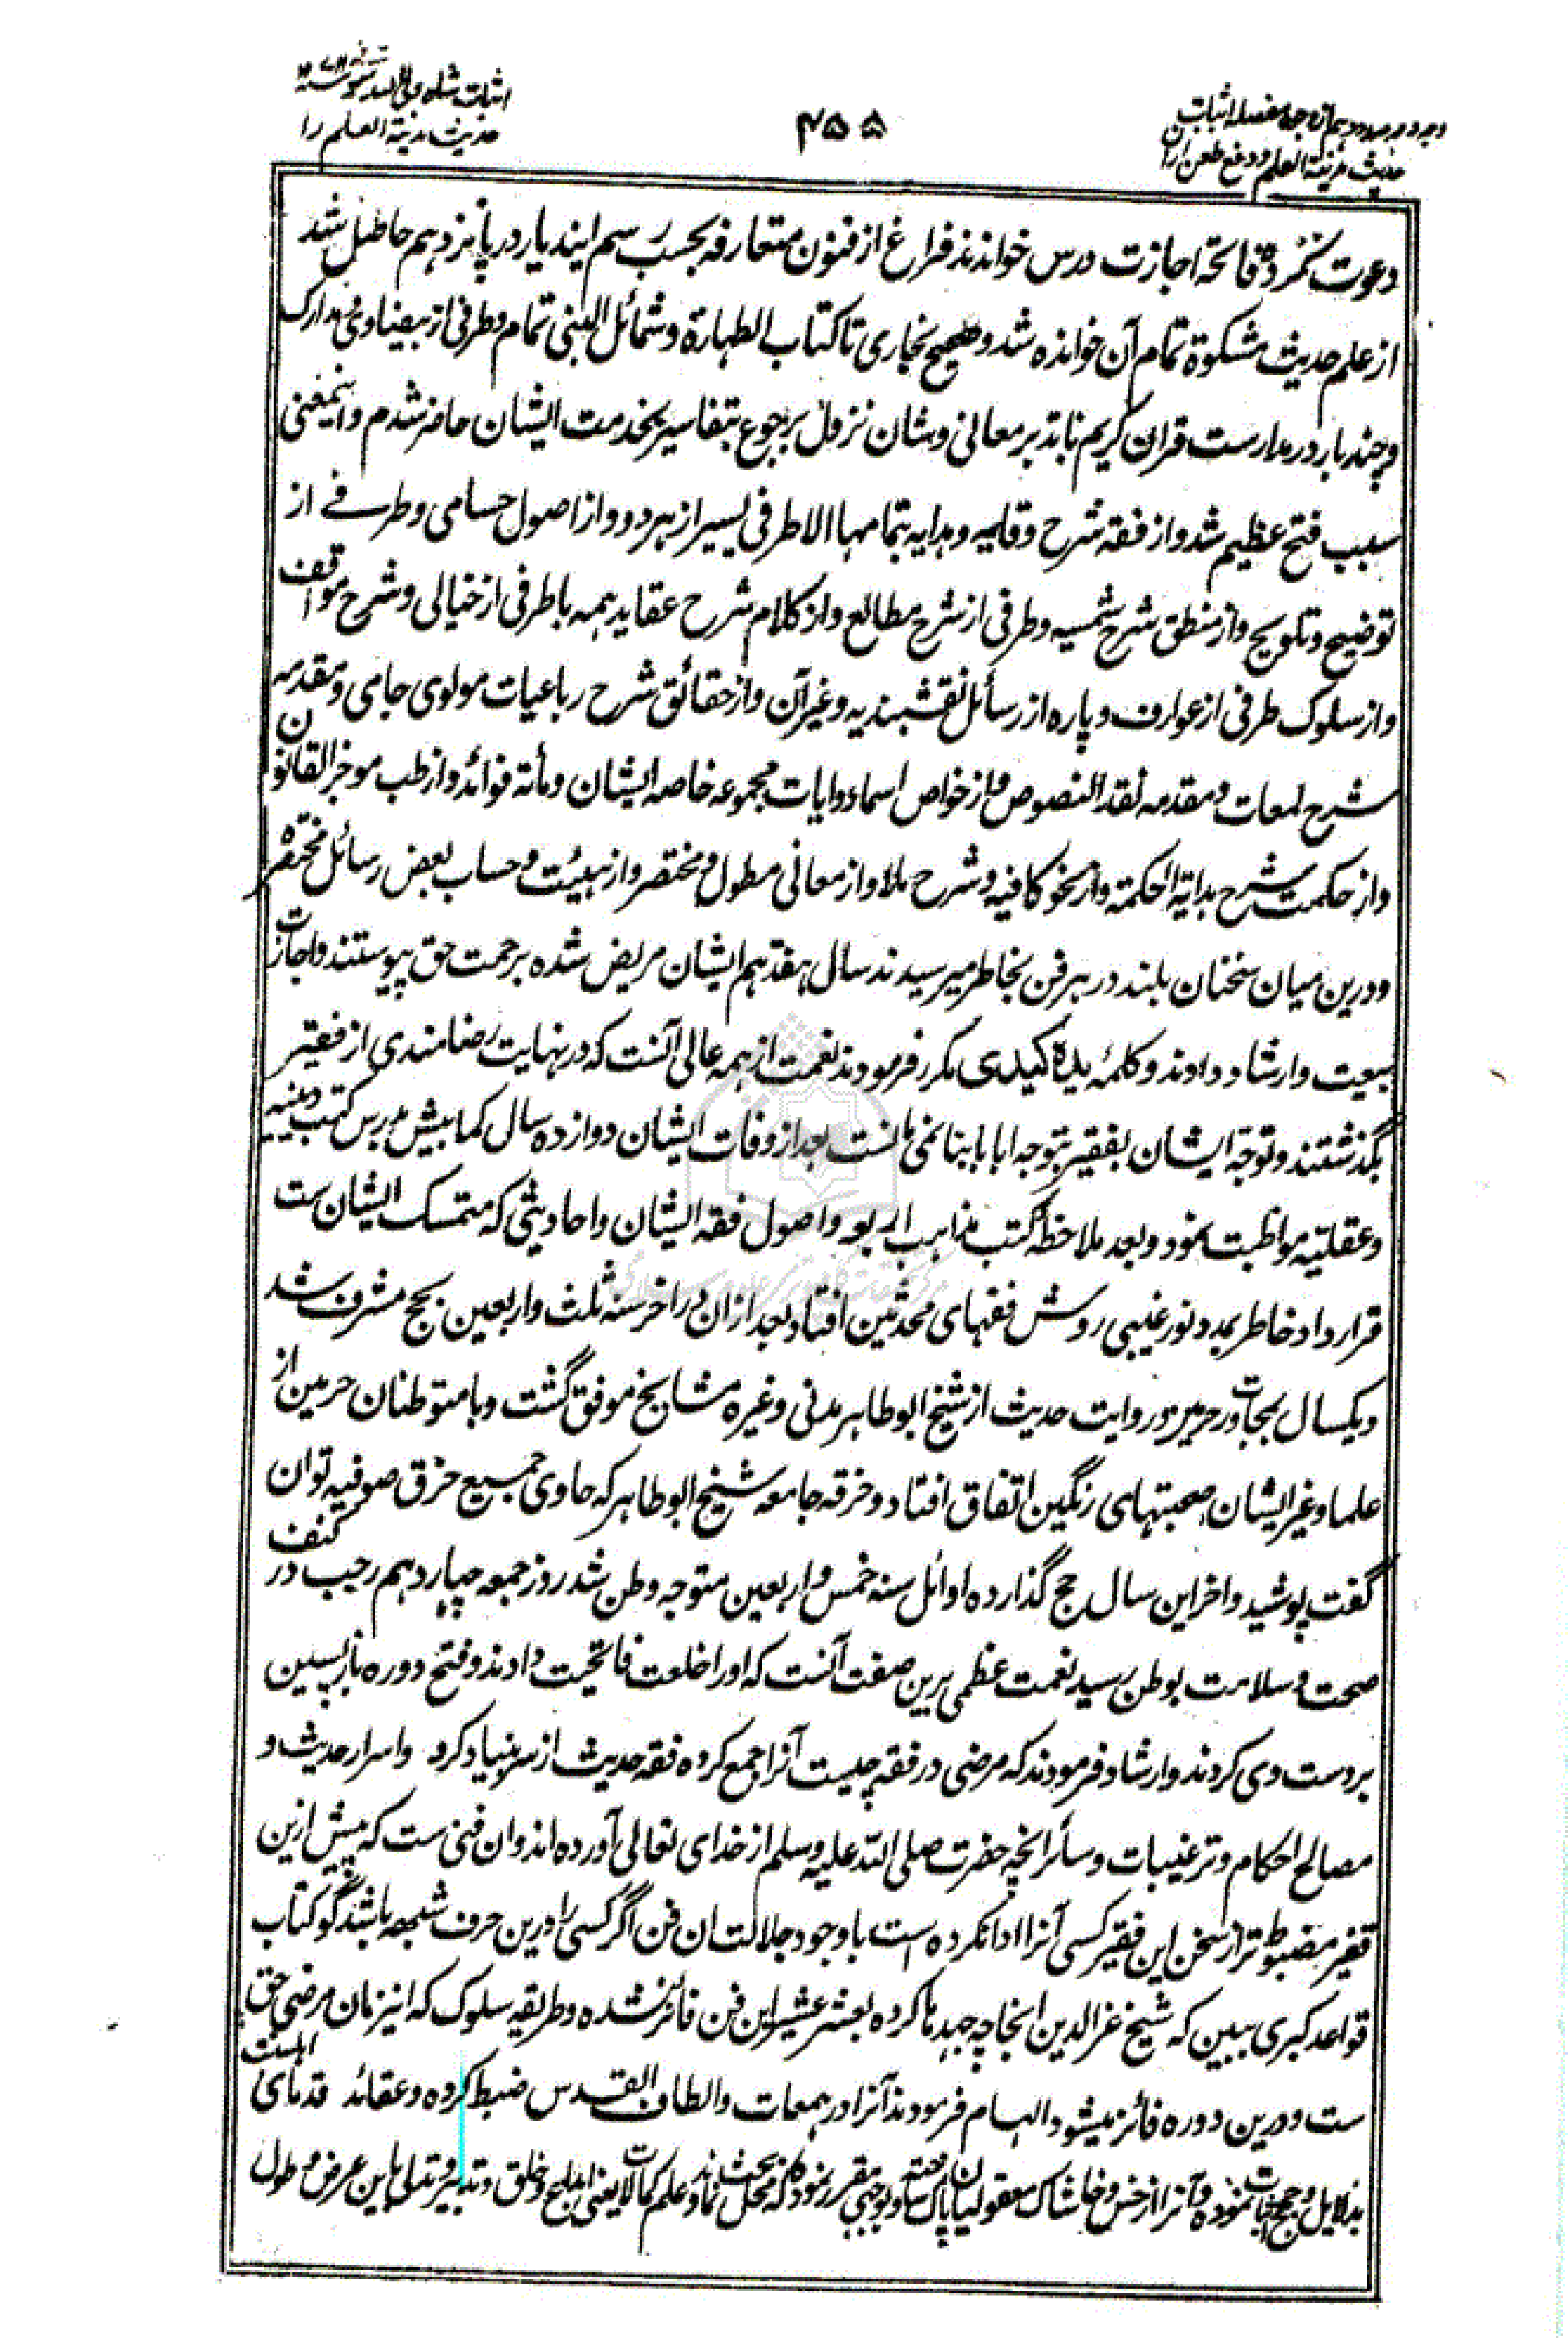 وجه دوم صد و دهم از وجوه مفصله اثبات
حدیث مدینة العلم و دفع طعن از آن
۴۵۵
اثبات شاه ولی الله
حدیث مدینة العلم را
دعوت کرده فاتحه اجازت درس خواندند فراغ از فنون متعارفه بحسب رسم ایندیار در پانزدهم حاصل شد
از علم حدیث مشکوة تمام آن خوانده شد و صحیح بخاری تا کتاب الطهارة و شمائل النبی تمام و طرفی از بیضاوی و مدارک
و چند بار در مدارست قران کریم با تدبر معانی و شان نزول برجوع بتفاسیر بخدمت ایشان حاضر شدم و اینمعنی
سبب فتح عظیم شد و از فقه شرح وقایه و هدایه بتمامهما الا طرفی یسیر از هر دو و از اصول حسامی و طرفے از
توضیح و تلویح و از منطق شرح شمسیه و طرفی از شرح مطالع و از کلام شرح عقاید همه با طرفی از خیالی و شرح مواقف
و از سلوک طرفی از عوارف و پاره از رسائل نقشبندیه و غیر آن و از حقائق شرح رباعیات مولوی جامی و مقدمه
شرح لمعات و مقدمه نقد النصوص و از خواص اسما و ایات مجموعه خاصه ایشان و مأته فوائد و از طب موجز القانون
و از حکمت شرح هدایة الحکمة و از نحو کافیه و شرح ملا و از معانی مطول و مختصر و از هیئت و حساب بعض رسائل مختصره
و درین میان سخنان بلند در هر فن بخاطر میرسیدند سال هفدهم ایشان مریض شده برحمت حق پیوستند و اجازت
بیعت و ارشاد دادند و کلمهٔ یده کیدی مکرر فرمودند نعمت از همه عالی آنست که در نهایت رضامندی از فقیر
بگذشتند و توجه ایشان بفقیر بتوجه ابا بابنا نمی مانست بعد از وفات ایشان دوازده سال کما بیش بدرس کتب دینیه
و عقلیه مواظبت نمود و بعد ملاحظه کتب مذاهب اربعه و اصول فقه ایشان و احادیثی که متمسک ایشان ست
قرارداد خاطر بمدد نور غیبی روش فقهای محدثین افتاد بعد ازان در اخر سنه ثلث و اربعین بحج مشرف شد
و یکسال بمجاورت حرمین و روایت حدیث از شیخ ابو طاهر مدنی و غیره مشایخ موفق گشت و با متوطنان حرمین از
علما و غیر ایشان صحبتهای رنگین اتفاق افتاد و خرقه جامعه شیخ ابو طاهر که حاوی جمیع خرق صوفیه توان
گفت پوشید و اخر این سال حج گذارده اوائل سنه خمس و اربعین متوجه وطن شد روز جمعه چهاردهم رجب در کنف
صحت و سلامت بوطن رسید نعمت عظمی برین صفت آنست که اورا خلعت فاتحیت دادند و فتح دوره بازپسین
بر دست وی کردند و ارشاد فرمودند که مرضی در فقه چیست آنرا جمع کرده فقه حدیث از سر بنیاد کرد و اسرار حدیث و
مصالح احکام و ترغیبات و سائر انچه حضرت صلی الله علیه و سلم از خدای تعالی آورده اند و ان فنی ست که پیش ازین
فقیر مضبوط تر از سخن این فقیر کسی آنرا ادا نکرده است باوجود جلالت ان فن اگر کسی را درین حرف شبهه باشد گو کتاب
قواعد کبری ببین که شیخ عز الدین انجا چه جهدها کرده بعشر عشیر این فن فائز نشده و طریقه سلوک که اینزمان مرضی حق
ست و درین دوره فائز میشود الهام فرمودند آنرا در همعات و الطاف القدس ضبط کرده و عقائد قدمای اهلسنت
بدلایل و حجج اثبات نموده و آنرا از خس و خاشاک معقولیان پاک ساخته و بوجهی مقرر نموده که محل بحث نماند و علم کمالات یعنی ابداع و خلق و تدبیر و تدلی باین عرض و طول